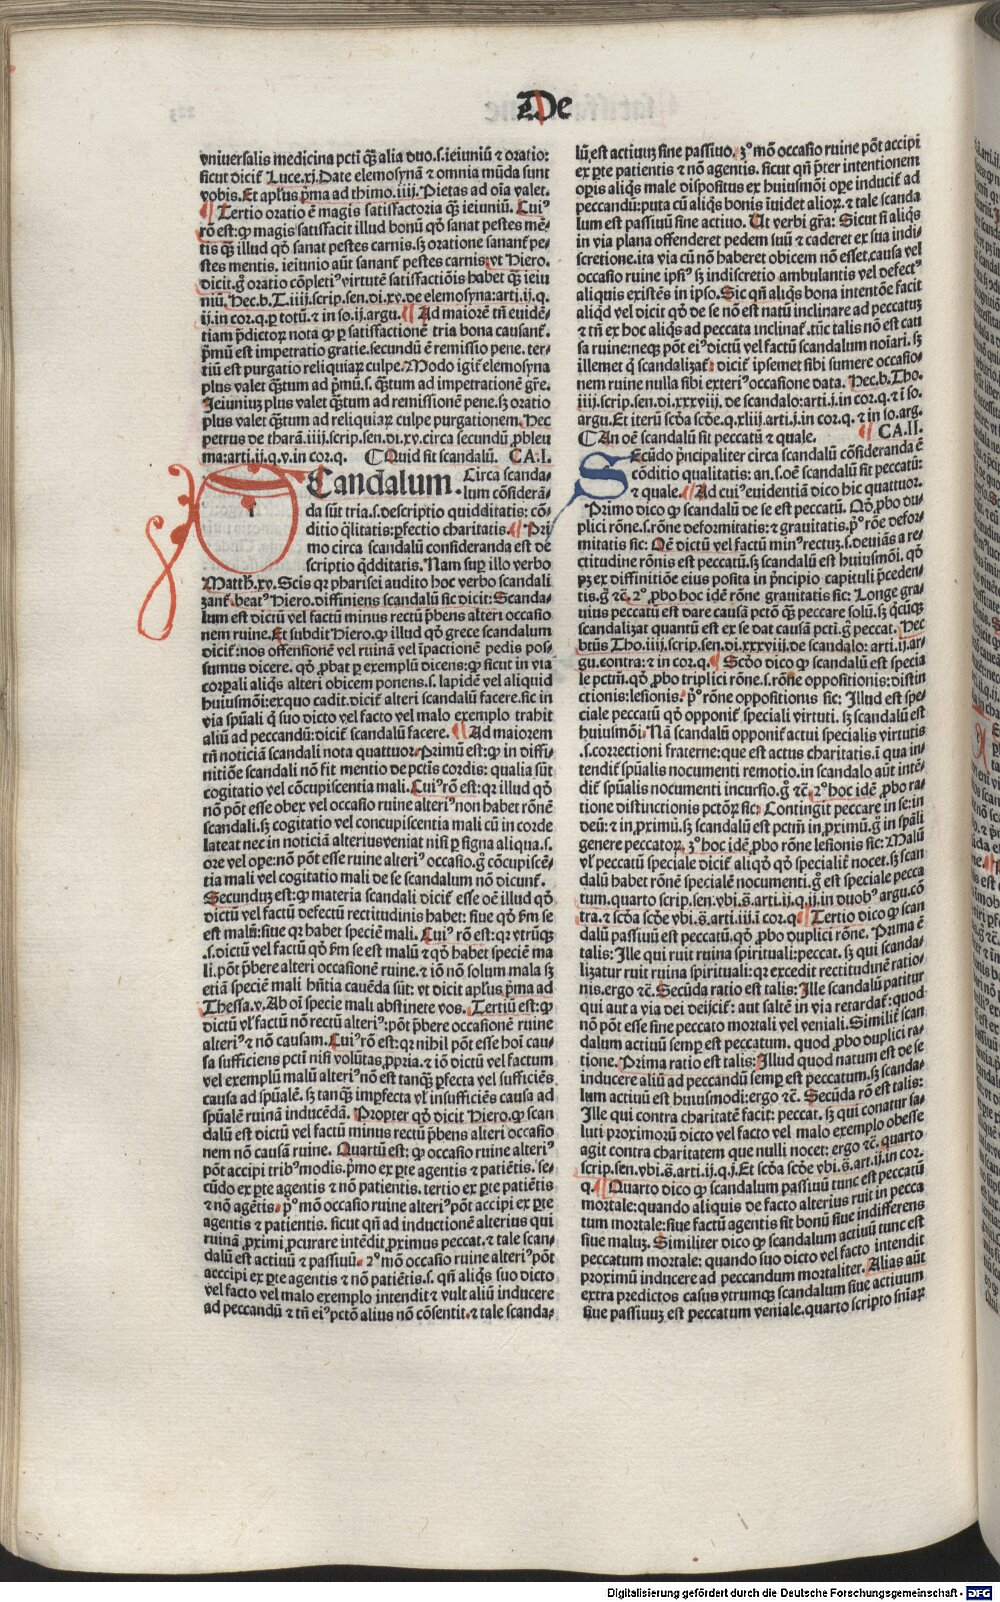 De
vniuersalis medicina pcti q̄ʒ alia duo.s.ieiuniū ⁊ oratio:
sicut dicit̄ Luce.xj. Date elemosynā ⁊ omnia mūda sunt
vobis. Et apl̄us p̄ma ad thimo.iiij. Pietas ad oīa valet.
¶ Tertio oratio ē magis satisfactoria q̄ʒ ieiuniū. Cuiꝰ
rō est: ꝙ magis satisfacit illud bonū qd̄ sanat pestes mē-
tis q̄ʒ illud qd̄ sanat pestes carnis. sꝫ oratione sanant̄ pe-
stes mentis. ieiunio aūt sanant̄ pestes carnis: vt Hiero.
dicit. g̊ oratio cōpletiꝰ virtutē satisfactiōis habet q̄ʒ ieiu
niū. Hec.b.T.iiij.scrip.sen.di.xv.de elemosyna: arti.ij.q.
ij.in cor.q.ꝑ totū. ⁊ in so.ij.argu. ¶ Ad maiorē tn̄ euidē-
tiam p̄dictoꝝ nota ꝙ ꝑ satisfactionē tria bona causant̄.
p̄mū est impetratio gratie. secundū ē remissio pene. ter-
tiū est purgatio reliquiaꝝ culpe. Modo igit̄ elemosyna
plus valet q̄ʒtum ad p̄mū.s. q̄ʒtum ad impetrationē gr̄e.
Ieiuniuꝫ plus valet q̄ʒtum ad remissionē pene. sꝫ oratio
plus valet q̄ʒtum ad reliquiaꝝ culpe purgationem. Hec
petrus de tharā.iiij.scrip.sen.di.xv.circa secundū ꝓbleu
ma: arti.ij.q.v.in cor.q. ¶ Quid sit scandalū. CA.I.
Candalum. Circa scanda-
lum cōsiderā-
da sūt tria.s.descriptio quidditatis: cō-
ditio q̄litatis: ꝑfectio charitatis. ¶ Pri
mo circa scandalū consideranda est de
scriptio qdditatis. Nam suꝑ illo verbo
Matth̄.xv. Scis qꝛ pharisei audito hoc verbo scandali
zant̄. beatꝰ Hiero. diffiniens scandalū sic dicit: Scanda-
lum est dictū vel factū minus rectū p̄bens alteri occasio
nem ruine. Et subdit Hiero. ꝙ illud qd̄ grece scandalum
dicit̄: nos offensionē vel ruinā vel īpactionē pedis pos-
sumus dicere. qd̄ ꝓbat ꝑ exemplū dicens: ꝙ sicut in via
corꝑali aliq̄s alteri obicem ponens.s. lapidē vel aliquid
huiusmōi: ex quo cadit. dicit̄ alteri scandalū facere. sic in
via spūali q̄ suo dicto vel facto vel malo exemplo trahit
aliū ad peccandū: dicit̄ scandalū facere. ¶ Ad maiorem
tn̄ noticiā scandali nota quattuor. Primū est: ꝙ in diffi-
nitiōe scandali nō fit mentio de pctis cordis: qualia sūt
cogitatio vel cōcupiscentia mali. Cuiꝰ rō est: qꝛ illud qd̄
nō pōt esse obex vel occasio ruine alteriꝰ non habet rōnē
scandali. sꝫ cogitatio vel concupiscentia mali cū in corde
lateat nec in noticiā alterius veniat nisi ꝑ signa aliqua.s.
ore vel ope: nō pōt esse ruine alteriꝰ occasio. g̊ cōcupiscē-
tia mali vel cogitatio mali de se scandalum nō dicunt̄.
Secunduꝫ est: ꝙ materia scandali dicit̄ esse oē illud qd̄
dictū vel factū defectū rectitudinis habet: siue qd̄ f̄m se
est malū: siue qꝛ habet speciē mali. Cuiꝰ rō est: qꝛ vtrūqꝫ
.s.dictū vel factū qd̄ f̄m se est malū ⁊ qd̄ habet speciē ma
li. pōt p̄bere alteri occasionē ruine. ⁊ iō nō solum mala sꝫ
etiā speciē mali hn̄tia cauēda sūt: vt dicit apl̄us p̄ma ad
Thessa.v. Ab oī specie mali abstinete vos. Tertiū est: ꝙ
dictū vl̄ factū nō rectū alteriꝰ: pōt p̄bere occasionē ruine
alteriꝰ ⁊ nō causam. Cuiꝰ rō est: qꝛ nihil pōt esse hoī cau-
sa sufficiens pcti nisi volūtas ꝓpria. ⁊ iō dictū vel factum
vel exemplū malū alteriꝰ nō est tanq̄ʒ ꝑfecta vel sufficiēs
causa ad spūalē. sꝫ tanq̄ʒ imꝑfecta vl̄ insufficiēs causa ad
spūalē ruinā inducēdā. Propter qd̄ dicit Hiero. ꝙ scan
dalū est dictū vel factū minus rectū p̄bens alteri occasio
nem nō causā ruine. Quartū est: ꝙ occasio ruine alteriꝰ
pōt accipi tribꝰ modis. p̄mo ex ꝑte agentis ⁊ patiētis. se-
cūdo ex ꝑte agentis ⁊ nō patientis. tertio ex ꝑte patiētis
⁊ nō agētis. pꝰ mō occasio ruine alteriꝰ pōt accipi ex ꝑte
agentis ⁊ patientis. sicut qn̄ ad inductionē alterius qui
ruinā ꝓximi ꝓcurare intēdit ꝓximus peccat. ⁊ tale scan-
dalū est actiuū ⁊ passiuū. 2ꝰ mō occasio ruine alteriꝰ pōt
acccipi ex ꝑte agentis ⁊ nō patiētis.s. qn̄ aliq̄s suo dicto
vel facto vel malo exemplo intendit ⁊ vult aliū inducere
ad peccandū ⁊ tn̄ eiꝰ pctō alius nō cōsentit. ⁊ tale scanda-
lū est actiuuꝫ sine passiuo. 3ꝰ mō occasio ruine pōt accipi
ex ꝑte patientis ⁊ nō agentis. sicut qn̄ p̄ter intentionem
opis aliq̄s male dispositus ex huiusmōi ope inducit̄ ad
peccandū: puta cū aliq̄s bonis īuidet alioꝝ. ⁊ tale scanda
lum est passiuū sine actiuo. Ut verbi gr̄a: Sicut si aliq̄s
in via plana offenderet pedem suū ⁊ caderet ex sua indi-
scretione. ita via cū nō haberet obicem nō esset causa vel
occasio ruine ipsiꝰ sꝫ indiscretio ambulantis vel defectꝰ
aliquis existēs in ipso. Sic qn̄ aliq̄s bona intentōe facit
aliqd vel dicit qd̄ de se nō est natū inclinare ad peccatuꝫ
⁊ tn̄ ex hoc aliq̄s ad peccata inclinat̄. tūc talis nō est cau
sa ruine: neqꝫ pōt eiꝰ dictū vel factū scandalum noīari. sꝫ
illemet q̄ scandalizat̄: dicit̄ ipsemet sibi sumere occasio-
nem ruine nulla sibi exteriꝰ occasione data. Hec.b.Tho.
iiij.scrip.sen.di.xxxviij. de scandalo: arti.j.in cor.q. ⁊ ī so.
argu. Et iterū scd̄a scd̄e.q.xliij.arti.j.in cor.q. ⁊ in so.arg.
¶ An oē scandalū sit peccatū ⁊ quale. ¶ CA.II.
SEcūdo p̄ncipaliter circa scandalū cōsideranda ē
cōditio qualitatis: an.s.oē scandalū sit peccatū:
⁊ quale. ¶ Ad cuiꝰ euidentiā dico hic quattuor.
Primo dico ꝙ scandalū de se est peccatū. Qd̄ ꝓbo du-
plici rōne.s.rōne deformitatis: ⁊ grauitatis. pꝰ rōe defor-
mitatis sic: Oē dictū vel factū minꝰ rectuꝫ.s.deuiās a re-
ctitudine rōnis est peccatū. sꝫ scandalū est huiusmōi. qd̄
pꝫ ex diffinitiōe eius posita in p̄ncipio capituli p̄ceden-
tis. g̊ ⁊c̄. 2ꝰ ꝓbo hoc idē rōne grauitatis sic: Longe gra-
uius peccatū est dare causā pctō q̄ʒ peccare solū. sꝫ q̄cūqꝫ
scandalizat quantū est ex se dat causā pcti. g̊ peccat. Hec
btūs Tho.iiij.scrip.sen.di.xxxviij.de scandalo: arti.ij.ar-
gu.contra: ⁊ in cor.q. ¶ Scd̄o dico ꝙ scandalū est specia
le pctm̄. qd̄ ꝓbo triplici rōne.s.rōne oppositionis: distin
ctionis: lesionis. pꝰ rōne oppositionis sic: Illud est spe-
ciale peccatū qd̄ opponit̄ speciali virtuti. sꝫ scandalū est
huiusmōi. Nā scandalū opponit̄ actui specialis virtutis
.s.correctioni fraterne: que est actus charitatis. ī qua in-
tendit̄ spūalis nocumenti remotio. in scandalo aūt intē-
dit̄ spūalis nocumenti incursio. g̊ ⁊c̄. 2ꝰ hoc idē ꝓbo ra-
tione distinctionis pctōꝝ sic: Contingit peccare in se: in
deū: ⁊ in ꝓximū. sꝫ scandalū est pctm̄ in ꝓximū. g̊ in spāli
genere peccatoꝝ. 3ꝰ hoc idē ꝓbo rōne lesionis sic: Malū
vl̄ peccatū speciale dicit̄ aliqd̄ qd̄ specialit̄ nocet. sꝫ scan
dalū habet rōnē specialē nocumenti. g̊ est speciale pecca
tum. quarto scrip.sen: vbi.s̄.arti.ij.q.ij.in duobꝰ argu.cō
tra. ⁊ scd̄a scd̄e vbi.s̄.arti.iij.ī cor.q. ¶ Tertio dico ꝙ scan
dalū passiuū est peccatū. qd̄ ꝓbo duplici rōne. Prima ē
talis: Ille qui ruit ruina spirituali: peccat. sꝫ qui scanda-
lizatur ruit ruina spirituali: qꝛ excedit rectitudinē ratio-
nis. ergo ⁊c̄. Secūda ratio est talis: Ille scandalū patitur
qui aut a via dei deijcit̄: aut saltē in via retardat̄: quod
nō pōt esse sine peccato mortali vel veniali. Similit̄ scan
dalum actiuū semꝑ est peccatum. quod ꝓbo duplici ra-
tione. Prima ratio est talis: Illud quod natum est de se
inducere aliū ad peccandū semꝑ est peccatum. sꝫ scanda-
lum actiuū est huiusmodi: ergo ⁊c̄. Secūda rō est talis:
Ille qui contra charitatē facit: peccat. sꝫ qui conatur sa-
luti proximorū dicto vel facto vel malo exemplo obesse
agit contra charitatem que nulli nocet: ergo ⁊c̄. quarto
scrip.sen.vbi.s̄.arti.ij.q.j. Et scd̄a scd̄e vbi.s̄.art.ij.in cor.
q. ¶ Quarto dico ꝙ scandalum passiuū tunc est peccatū
mortale: quando aliquis de facto alterius ruit in pecca
tum mortale: siue factū agentis sit bonū siue indifferens
siue maluꝫ. Similiter dico ꝙ scandalum actiuū tunc est
peccatum mortale: quando suo dicto vel facto intendit
proximū inducere ad peccandum mortaliter. Alias aūt
extra predictos casus vtrumqꝫ scandalum siue actiuum
siue passiuuꝫ est peccatum veniale. quarto scripto sn̄iaꝝ
Digitalisierung gefördert durch die Deutsche Forschungsgemeinschaft - DFG